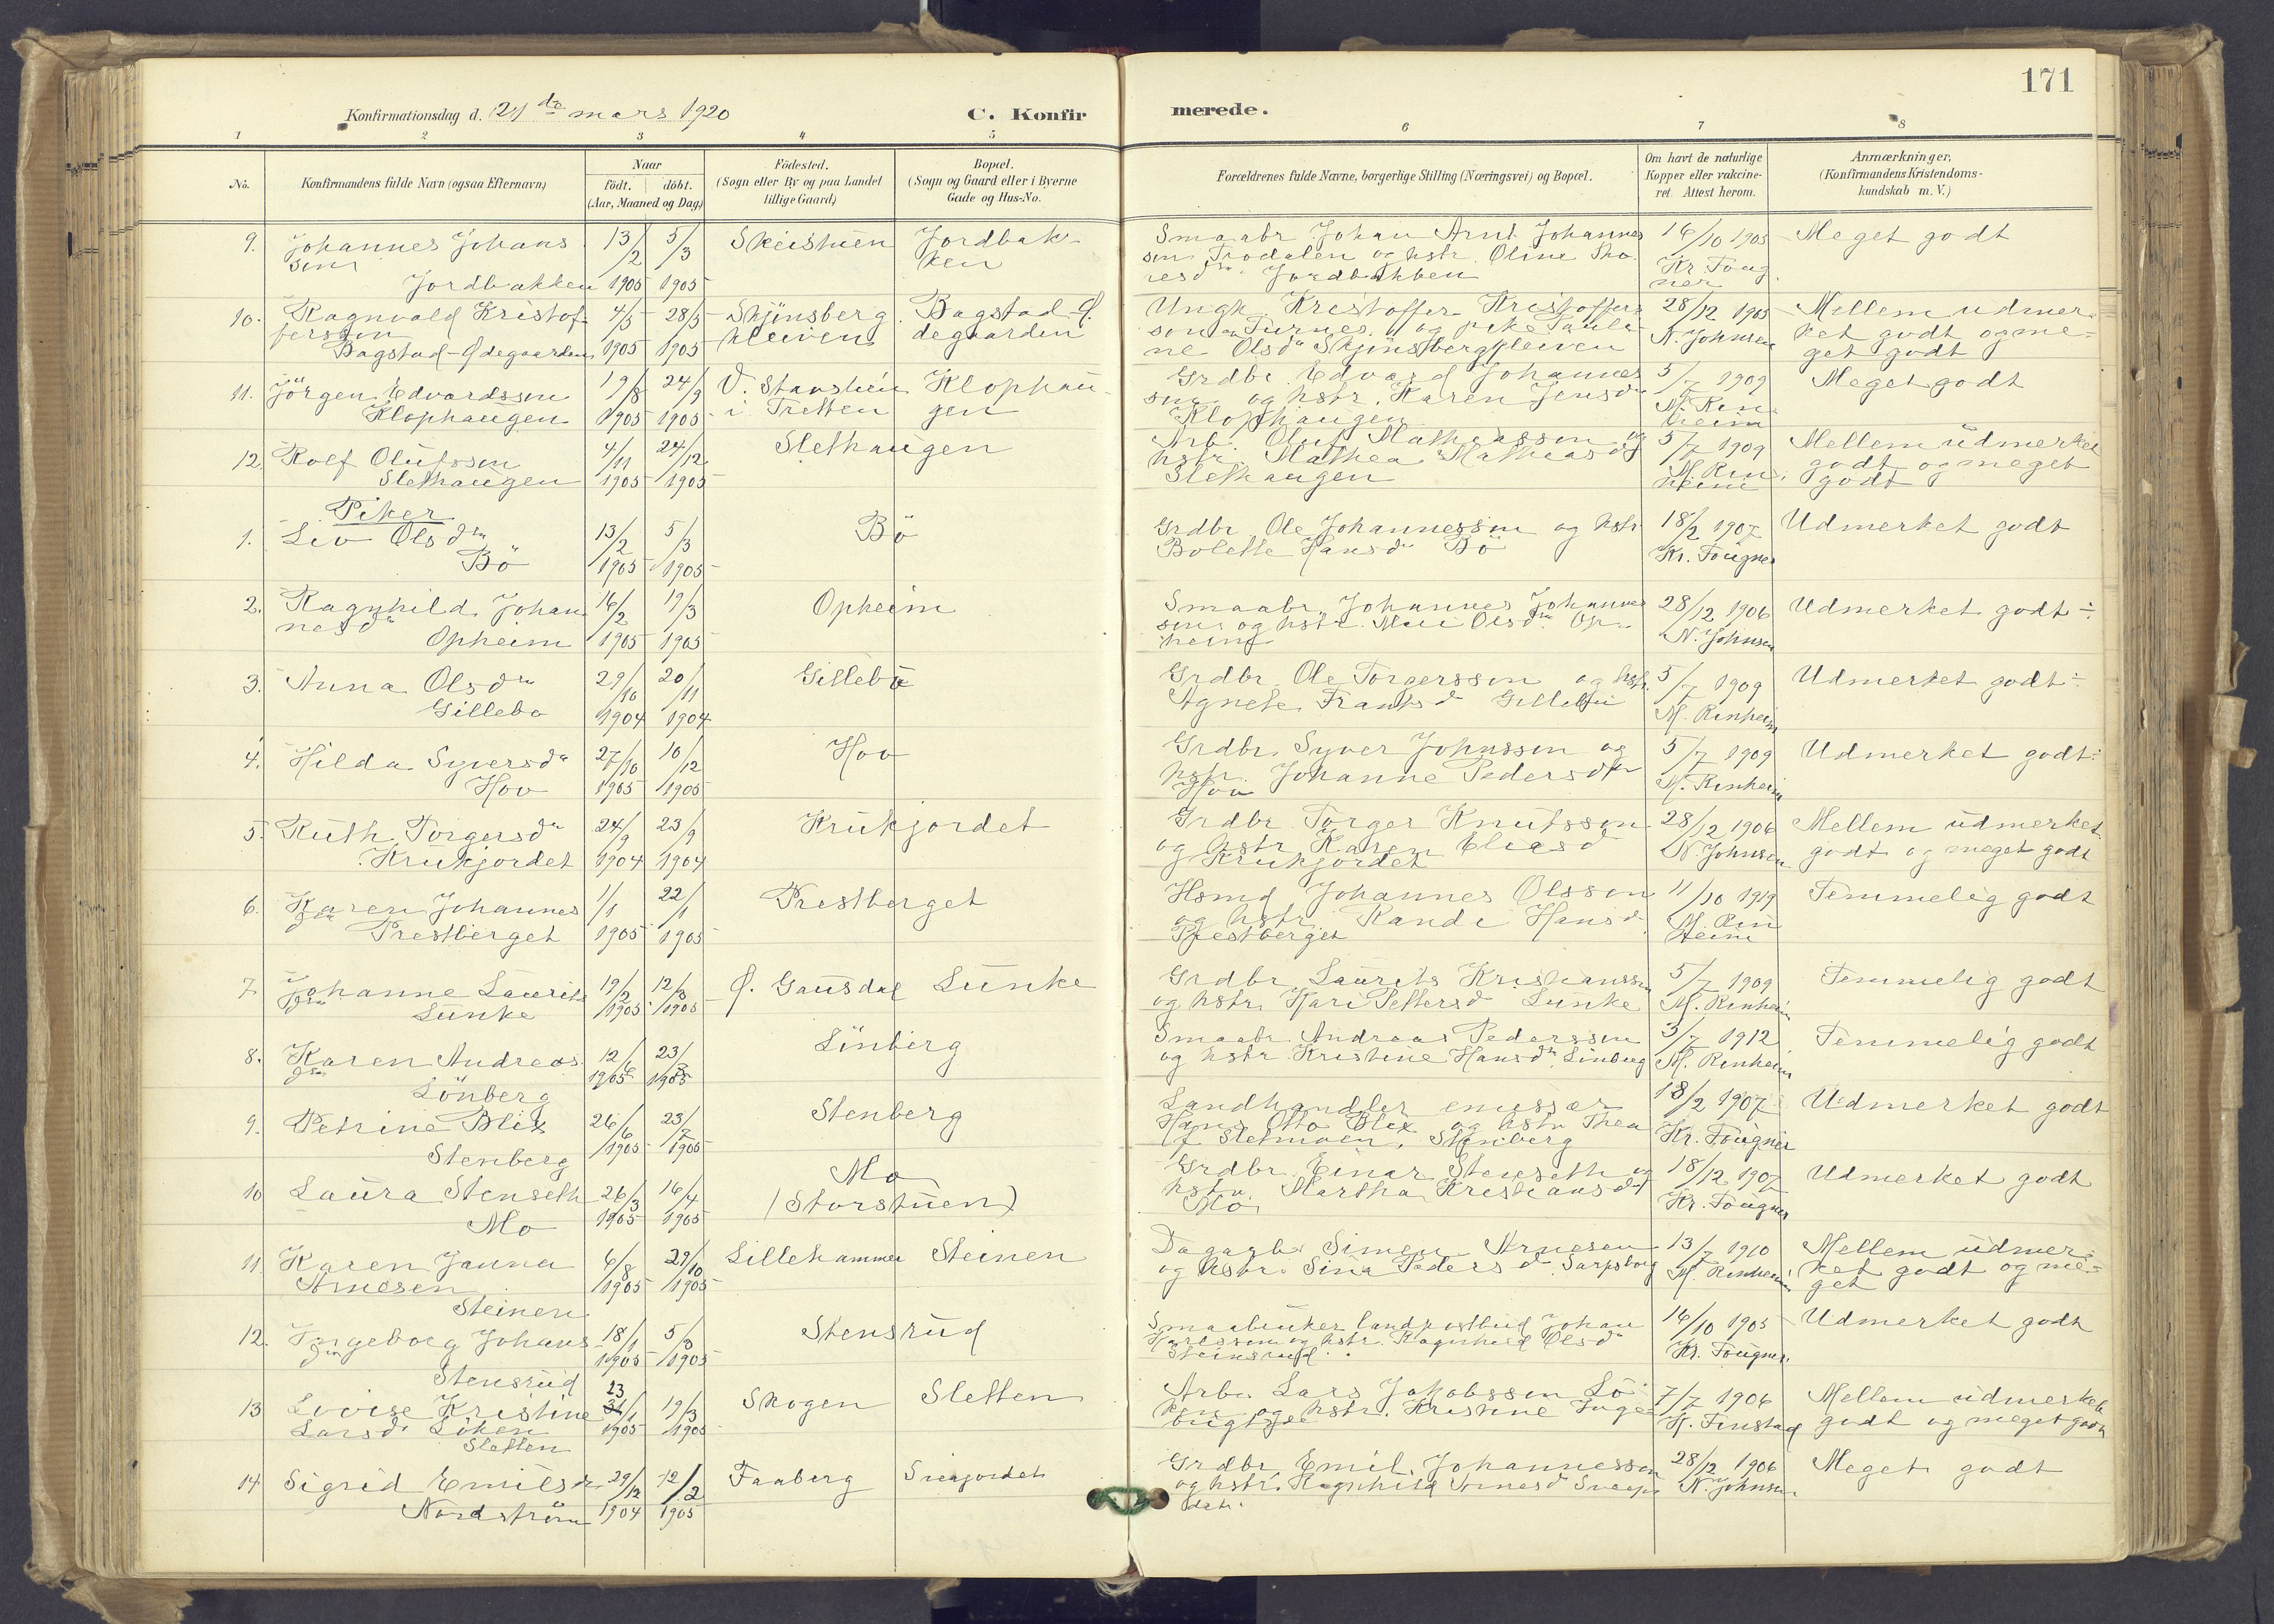 171
Konfirmationsdag d. 21 de mars 1920
C. Konfirmerede.
1 2 3 4 5 6 7 8
No.
Konfirmandens fulde Navn (ogsaa Efternavn)
Naar
födt. döbt.
(Aar, Maaned og Dag)
Födested.
(Sogn eller By og paa Landet
tillige Gaard)
Bopæl.
(Sogn og Gaard eller i Byerne
Gade og Hus-No.
Forældrenes fulde Navne, borgerlige Stilling (Næringsvei) og Bopæl.
Om havt de naturlige
Kopper eller vaccine-
ret. Attest herom.
Anmærkninger,
(Konfirmandens Kristendoms-
kundskab m. V.)
9. Johannes Johans 13/2 5/3 Skeistuen Jordbak- Smaabr Johan Arnt Johannes 16/10 1905 Meget godt
sen ken sen Trodalen og hstr. Oline Tho- Kr. Foug
Jordbakken 1905 1905 resd Jordbakken ner
10. Ragnvald Kristof- 4/3 28/5 Skjönsberg Bagstad-Ö- Ungk. Kristoffer Kristoffers 28/12 1905 Mellem udmer-
fersen kleiven degaarden son Furnes og pike Pauli- N. Johnsen ket godt og me-
Bagstad-Ödegaarden 1905 1905 ne Olsd Skjönsbergkleiven get godt
11. Jörgen Edvardssen 19/8 24/9 V. Stavstuen Klophau- Grdbr. Edvard Johannes 5/7 1909 Meget godt
Klophaugen 1905 1905 i Tretten gen sen og hstr. Karen Jensd M. Ren-
Klophaugen heim
12. Rolf Olufssen 4/11 24/12 Slethaugen Arb. Oluf Mathiassen og 5/7 1909 Mellem udmerket
Slethaugen 1905 1905 hstr. Mathea Mathiasd M. Ren- godt og meget
Slethaugen heim godt
Piker
1. Liv Olsdr 13/2 5/3 Bö Grdbr Ole Johannessen og hstr 18/2 1907 Udmerket godt
Bö 1905 1905 Bolette Hansd Bö Kr. Fougner
2. Ragnhild Johan 16/2 19/3 Opheim Smaabr. Johannes Johannes 28/12 1906 Udmerket godt ÷
nesd sen og hstr. Mari Olsd. Op-
Opheim 1905 1905 heim N. Johnsen
3. Anna Olsdr 29/10 20/11 Gillebu Grdbr Ole Torgerssen og hstr. 5/7 1909 Udmerket godt ÷
Gillebo 1904 1904 Agnete Frantsd Gillebu M. Renheim
4. Hilda Syversd 27/10 10/12 Hov Grdbr. Syver Johnssen og 5/7 1909 Udmerket godt ÷
Hov 1905 1905 hstr. Johanne Pedersdtr M. Renheim
Hov
5. Ruth Torgersd 24/9 23/9 Krukjordet Grdbr. Torger Knutssen 28/12 1906 Mellem udmerket
Krukjordet 1904 1904 og hstr Karen Eliasd N. Johnsen godt og meget godt
Krukjordet
6. Karen Johannes 1/1 22/1 Prestberget Hsmd Johannes Olssen 11/10 1919 Temmelig godt
dr og hstr Randi Hansd M. Ren
Prestberget 1905 1905 Prestberget heim
7. Johanne Laurits 19/2 12/3 Ö. Gausdal Lunke Grdbr Laurits Kristianssen 5/7 1909 Temmelig godt
dr Lunke 1905 1905 og hstr. Kari Pettersd Lunke M. Renheim
8. Karen Andreas 12/6 23/7 Lönberg Smaabr. Andreas Pederssen 3/7 1912 Temmelig godt
dr 1905 1905 og hstr Kristine Hansd. Lönberg M. Renheim
Lönberg
9. Petrine Blix 26/6 23/7 Stenberg Landhandler emissær 18/2 1907 Udmerket godt
1905 1905 Hans Otto Blix og hstr. Thea Kr. Fougner
Stenberg f. Sletmoen, Stenberg
10 Laura Stenseth 26/3 16/4 Mo Grdbr. Einar Stenseth og 18/12 1907 Udmerket godt
Mo 1905 1905 (Storstuen) hstr. Martha Kristiansd Kr. Fougner
Mo
11. Karen Janna 6/8 29/10 Lillehammer Steinen Dagarb. Simen Arnesen 13/7 1910 Mellem udmer-
Arnesen 1905 1905 og hstr. Sina Pedersd. Sarpsborg M. Renheim ket godt og me-
Steinen get
12. Ingeborg Johans 18/1 5/3 Stensrud Smaabruker landpostbud Johan 16/10 1905 Udmerket godt
dr 1905 1905 Karlssen og hstr. Ragnhild Olsd Kr. Fougner.
Stensrud Steinsrud
13 Lovise Kristine 23 31/1 19/3 Skogen Sletten Arb. Lars Jakobssen Lö- 7/7 1906 Mellem udmerket
Larsd. Löken 1905 1905 ken og hstr. Kristine Inge- K. Finstad godt og meget godt
Sletten
14 Sigrid Emilsdr 29/12 12/2 Faaberg Sveajordet Grdbr. Emil Johannessen 28/12 1906 Meget godt
Nordström 1904 1905 og hstr. Ragnhild N. Johnsen